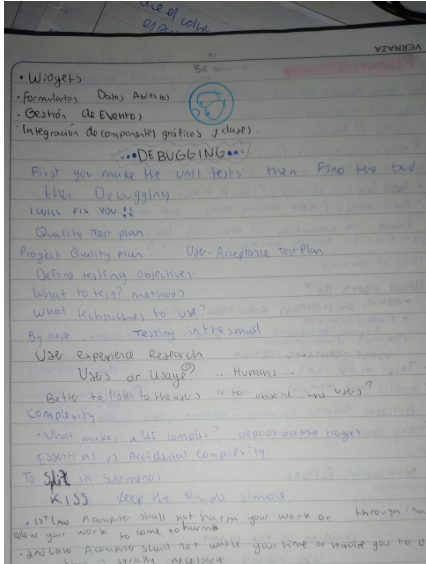 VERNAZA
• Widgets
• Formularios Datos Abiertos
• Gestión de Eventos
• Integración de componentes gráficos y clases.
•••DEBUGGING•••
First you make the unit tests then find the bad
then Debugging
I WILL FIX YOU !!
Quality Test plan
Project Quality Plan. User-Acceptance Test Plan
Define testing objectives
What to test? methods
What techniches to use?
By use ... Testing in the small
User Experience Research
Users or Usage? ... Humans ...
Better to listen to the users or to observe the users?
Complexity.
What makes a UI complex? depends on the target
Essential vs Accidental complexity.
To Split in
KISS keep the simple simple.
• 1st law A computer shall not harm your work or through
allow your work to come to harm
• 2nd Law A computer shall not waste your time or require you to
time is strictly necessary